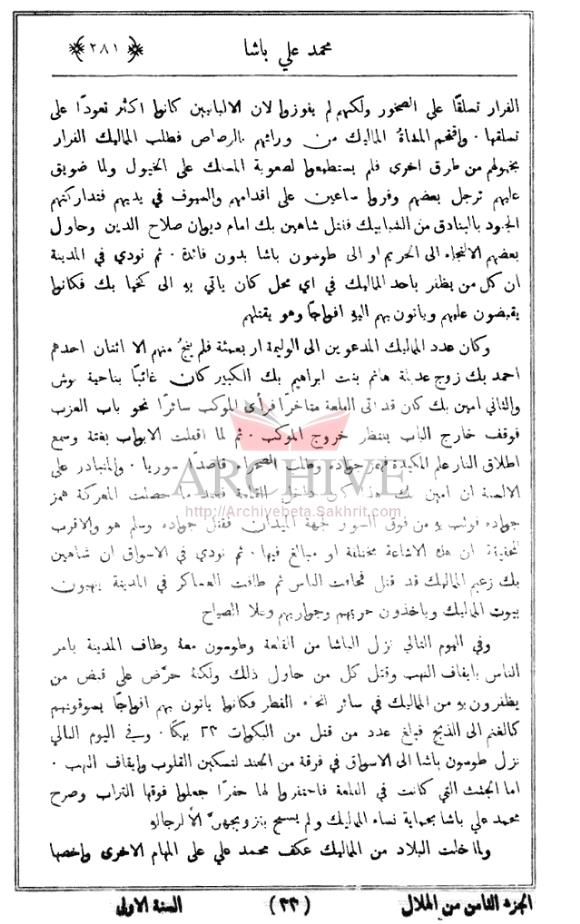 محمد علي باشا
﴿ ٢٨١ ﴾
الفرار تسلقًا على الصخور ولكنهم لم يفوزوا لان الالبانيين كانوا اكثر تعودًا على
تسلقها · واقتحم المشاةُ المماليك من ورائهم بالرصاص فطلب المماليك الفرار
بخيولهم من طرق اخرى فلم يستطيعوا لصعوبة المسلك على الخيول ولما ضويق
عليهم ترجل بعضهم وفروا ساعين على اقدامهم والسيوف في يديهم فتداركتهم
الجنود بالبنادق من الشبابيك فقتل شاهين بك امام ديوان صلاح الدين وحاول
بعضهم الالتجاء الى الحريم او الى طوسون باشا بدون فائدة · ثم نودي في المدينة
ان كل من يظفر باحد المماليك في اي محل كان ياتي بهِ الى كخيا بك فكانوا
يقبضون عليهم وياتون بهم اليهِ افواجًا وهو يقتلهم
وكان عدد المماليك المدعوين الى الوليمة اربعمئة فلم ينجُ منهم الا اثنان احدهم
احمد بك زوج عديلة هانم بنت ابراهيم بك الكبير كان غائبًا بناحية بوش
والثاني امين بك كان قد اتى القلعة متاخرًا فرأى الموكب سائرًا نحو باب العزب
فوقف خارج الباب ينتظر خروج الموكب · ثم لما اقفلت الابواب بغتة وسمع
اطلاق النار علم المكيدة فهمز جواده وطلب الصحراء قاصدًا سوريا · والمتبادر على
الالسنة ان امين بك هذا كان داخل القلعة فعند ما حصلت المعركة همز
جواده فوثب بهِ من فوق السور لجهة الميدان فقتل جواده وسلم هو والاقرب
للحقيقة ان هذه الاشاعة مختلقة او مبالغ فيها · ثم نودي في الاسواق ان شاهين
بك زعيم المماليك قد قتل فخافت الناس ثم طافت العساكر في المدينة ينهبون
بيوت المماليك وياخذون حريمهم وجواريهم وعلا الصياح
وفي اليوم التالي نزل الباشا من القلعة وطوسون معهُ وطاف المدينة يامر
الناس بايقاف النهب وقتل كل من حاول ذلك ولكنهُ حرّض على قبض من
يظفرون بهِ من المماليك في سائر انحاء القطر فكانوا ياتون بهم افواجًا يسوقونهم
كالغنم الى الذبح فبلغ عدد من قتل من البكوات ٢٣ بيكًا · وفي اليوم التالي
نزل طوسون باشا الى الاسواق في فرقة من الجند لتسكين القلوب وايقاف النهب ·
اما الجثث التي كانت في القلعة فاحتفروا لها حفرًا جعلوا فوقها التراب وصرح
محمد علي باشا بحماية نساء المماليك ولم يسمح بتزويجهنَّ الا لرجاله
ولما خلت البلاد من المماليك عكف محمد علي على المهام الاخرى واخصها
الجزء الثامن من الهلال
(٣٣)
السنة الاولى
ARCHIVE
http://Archivebeta.Sakhrit.com